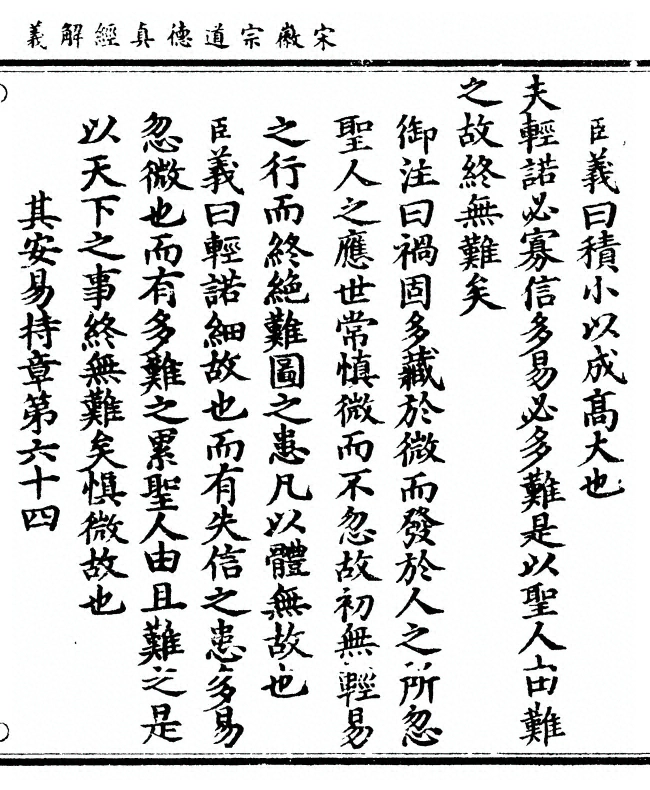 宋徽宗道德真經解義
臣義曰積小以成髙大也
夫輕諾必寡信多易必多難是以聖人由難
之故終無難矣
御注曰禍固多藏於微而發於人之所忽
聖人之應世常慎微而不忽故初無輕易
之行而終絕難圖之患凡以體無故也
臣義曰輕諾細故也而有失信之患多易
忽微也而有多難之累聖人由且難之是
以天下之事終無難矣惧微故也
其安易持章第六十四